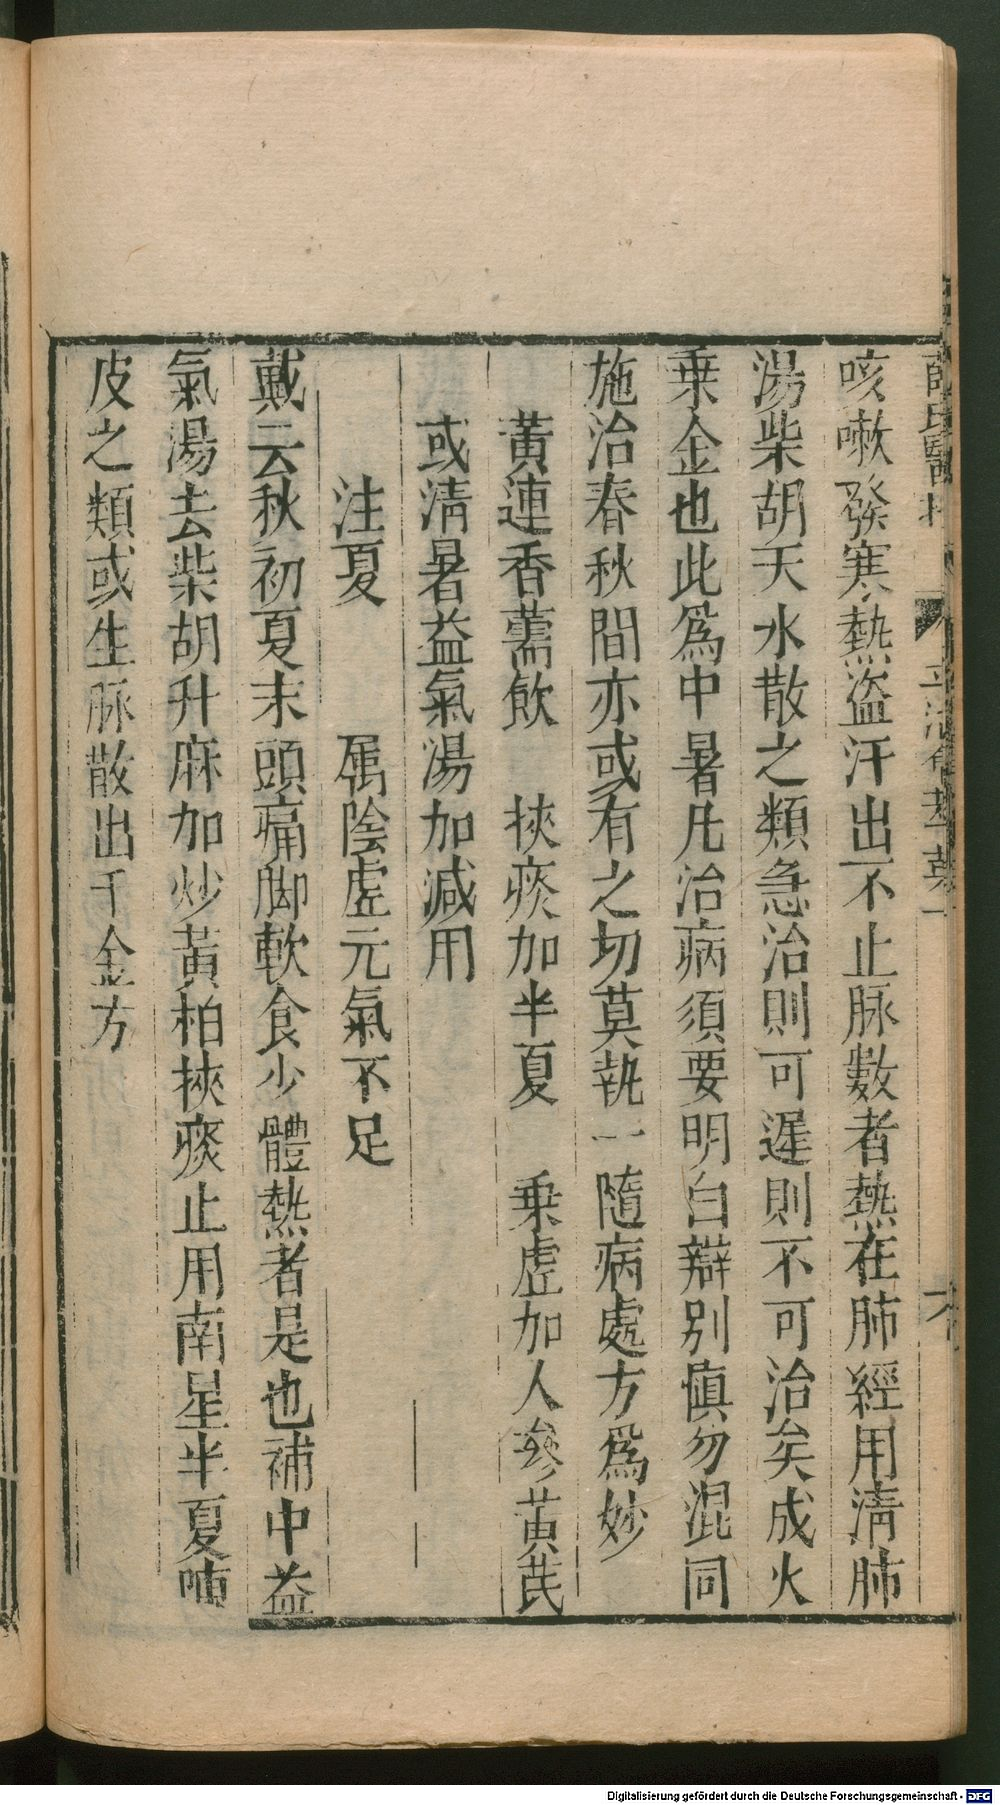 薛氏醫按
平治會萃卷一
六
咳嗽發寒熱盜汗出不止脉數者熱在肺經用清肺
湯柴胡天水散之類急治則可遲則不可治矣成火
乗金也此爲中暑凡治病須要明白辯别愼勿混同
施治春秋間亦或有之切莫執一隨病處方爲妙
黃連香薷飲 挾痰加半夏 乗虛加人參黃芪
或清暑益氣湯加減用
注夏 属陰虛元氣不足
戴云秋初夏末頭痛脚軟食少體熱者是也補中益
氣湯去柴胡升麻加炒黃柏挾痰止用南星半夏陳
皮之類或生脉散出千金方
Digitalisierung gefördert durch die Deutsche Forschungsgemeinschaft - DFG